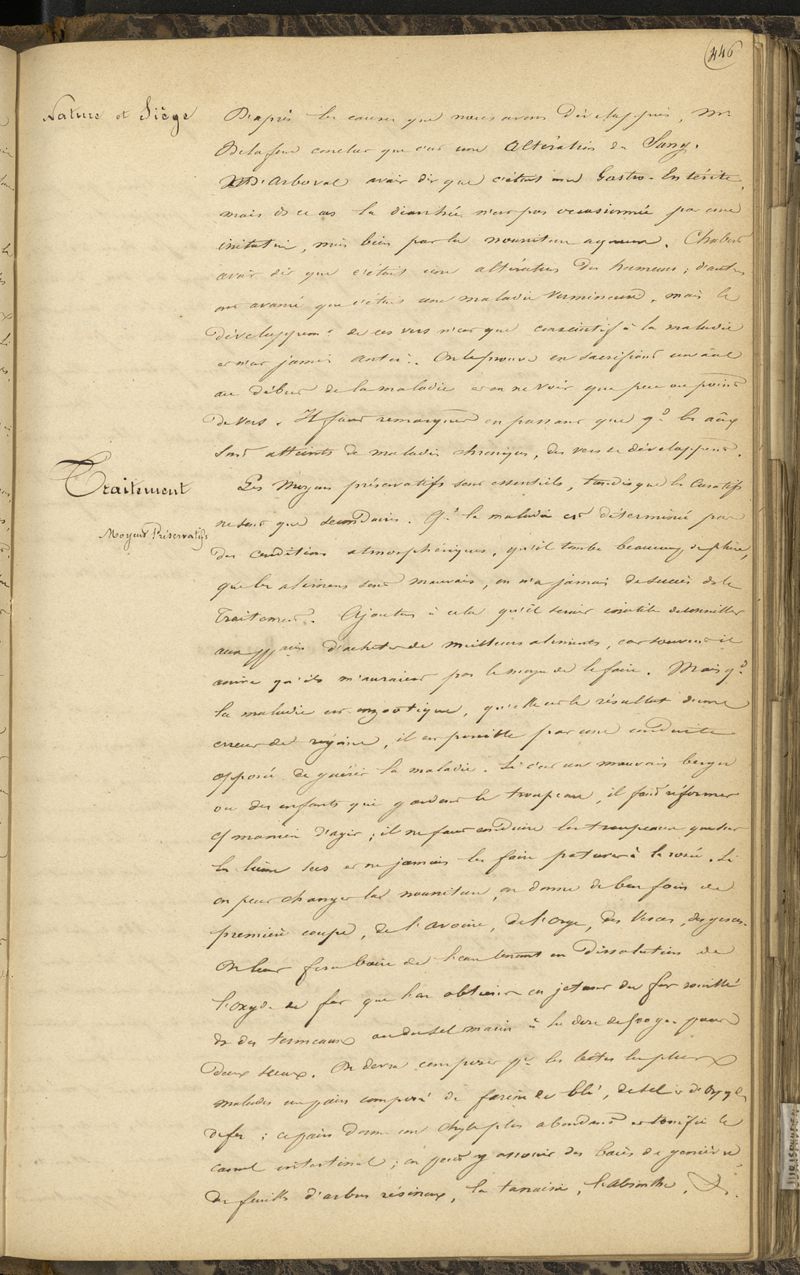 446
Nature et Siège
D'après les causes que nous avons développées, Mr
Delafond conclut que c'est une Altération du Sang.
D'Arboval avait dit que c'était une Gastro-Entérite,
mais ds ce cas la diarrhée n'est pas occasionnée par une
irritation, mais bien par la nourriture aqueuse. Chabert
avait dit que c'était une altération des humeurs ; d'autres
ont avancé que c'était une maladie vermineuse, mais le
développemt de ces vers n'est que consécutif à la maladie
et n'est jamais antér. On le prouve en sacrifiant un anl
au début de la maladie et on ne voit que peu ou point
de vers. Il faut remarquer en passant que qd les aux
sont atteints de maladies chroniques, des vers se développent.
Traitement
Moyens Préservatifs
Les Moyens préservatifs sont essentiels, tandis que les Curatifs
ne sont que secondaires. Qd la maladie est déterminée par
des conditions atmosphériques, qu'il tombe beaucoup de pluie,
que les alimens sont mauvais, on n'a jamais de succès ds le
Traitement. Ajoutons à cela qu'il serait inutile de conseiller
aux ppres d'acheter de meilleurs aliments, car souvent il
arrive qu'ils n'auraient pas le moyen de le faire. Mais qd
la maladie est enzootique, qu'elle est le résultat d'une
erreur de régime, il est possible par une conduite
opposée de guérir la maladie. Si c'est un mauvais berger
ou des enfants qui gardent le troupeau, il faut réformer
ct manière d'agir ; il ne faut conduire les troupeaux que sur
les lieux secs et ne jamais les faire paturer à la rosée. Si
on peut changer la nourriture, on donne de bon foin de
première coupe, de l'avoine, de l'orge, des Vesces, des gesces.
On leur fera boire de l'eau tenant en dissolution de
l'oxyde de fer que l'on obtient en jetant du fer rouillé
ds des tonneaux ou du sel marin à la dose de pour
deux seaux. On devra composer pr les bêtes les plus
malades un pain composé de farine de blé, de sel et d'oxyde
de fer ; ce pain donne un chyle plus abondant et tonifie le
canal intestinal ; on peut y associer des baies de genièvre
de feuilles d'arbres résineux, la tanaisie, l'absinthe, &.